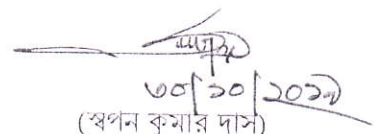 ৩০/১০/২০১৯
(স্বপন কুমার দাস)